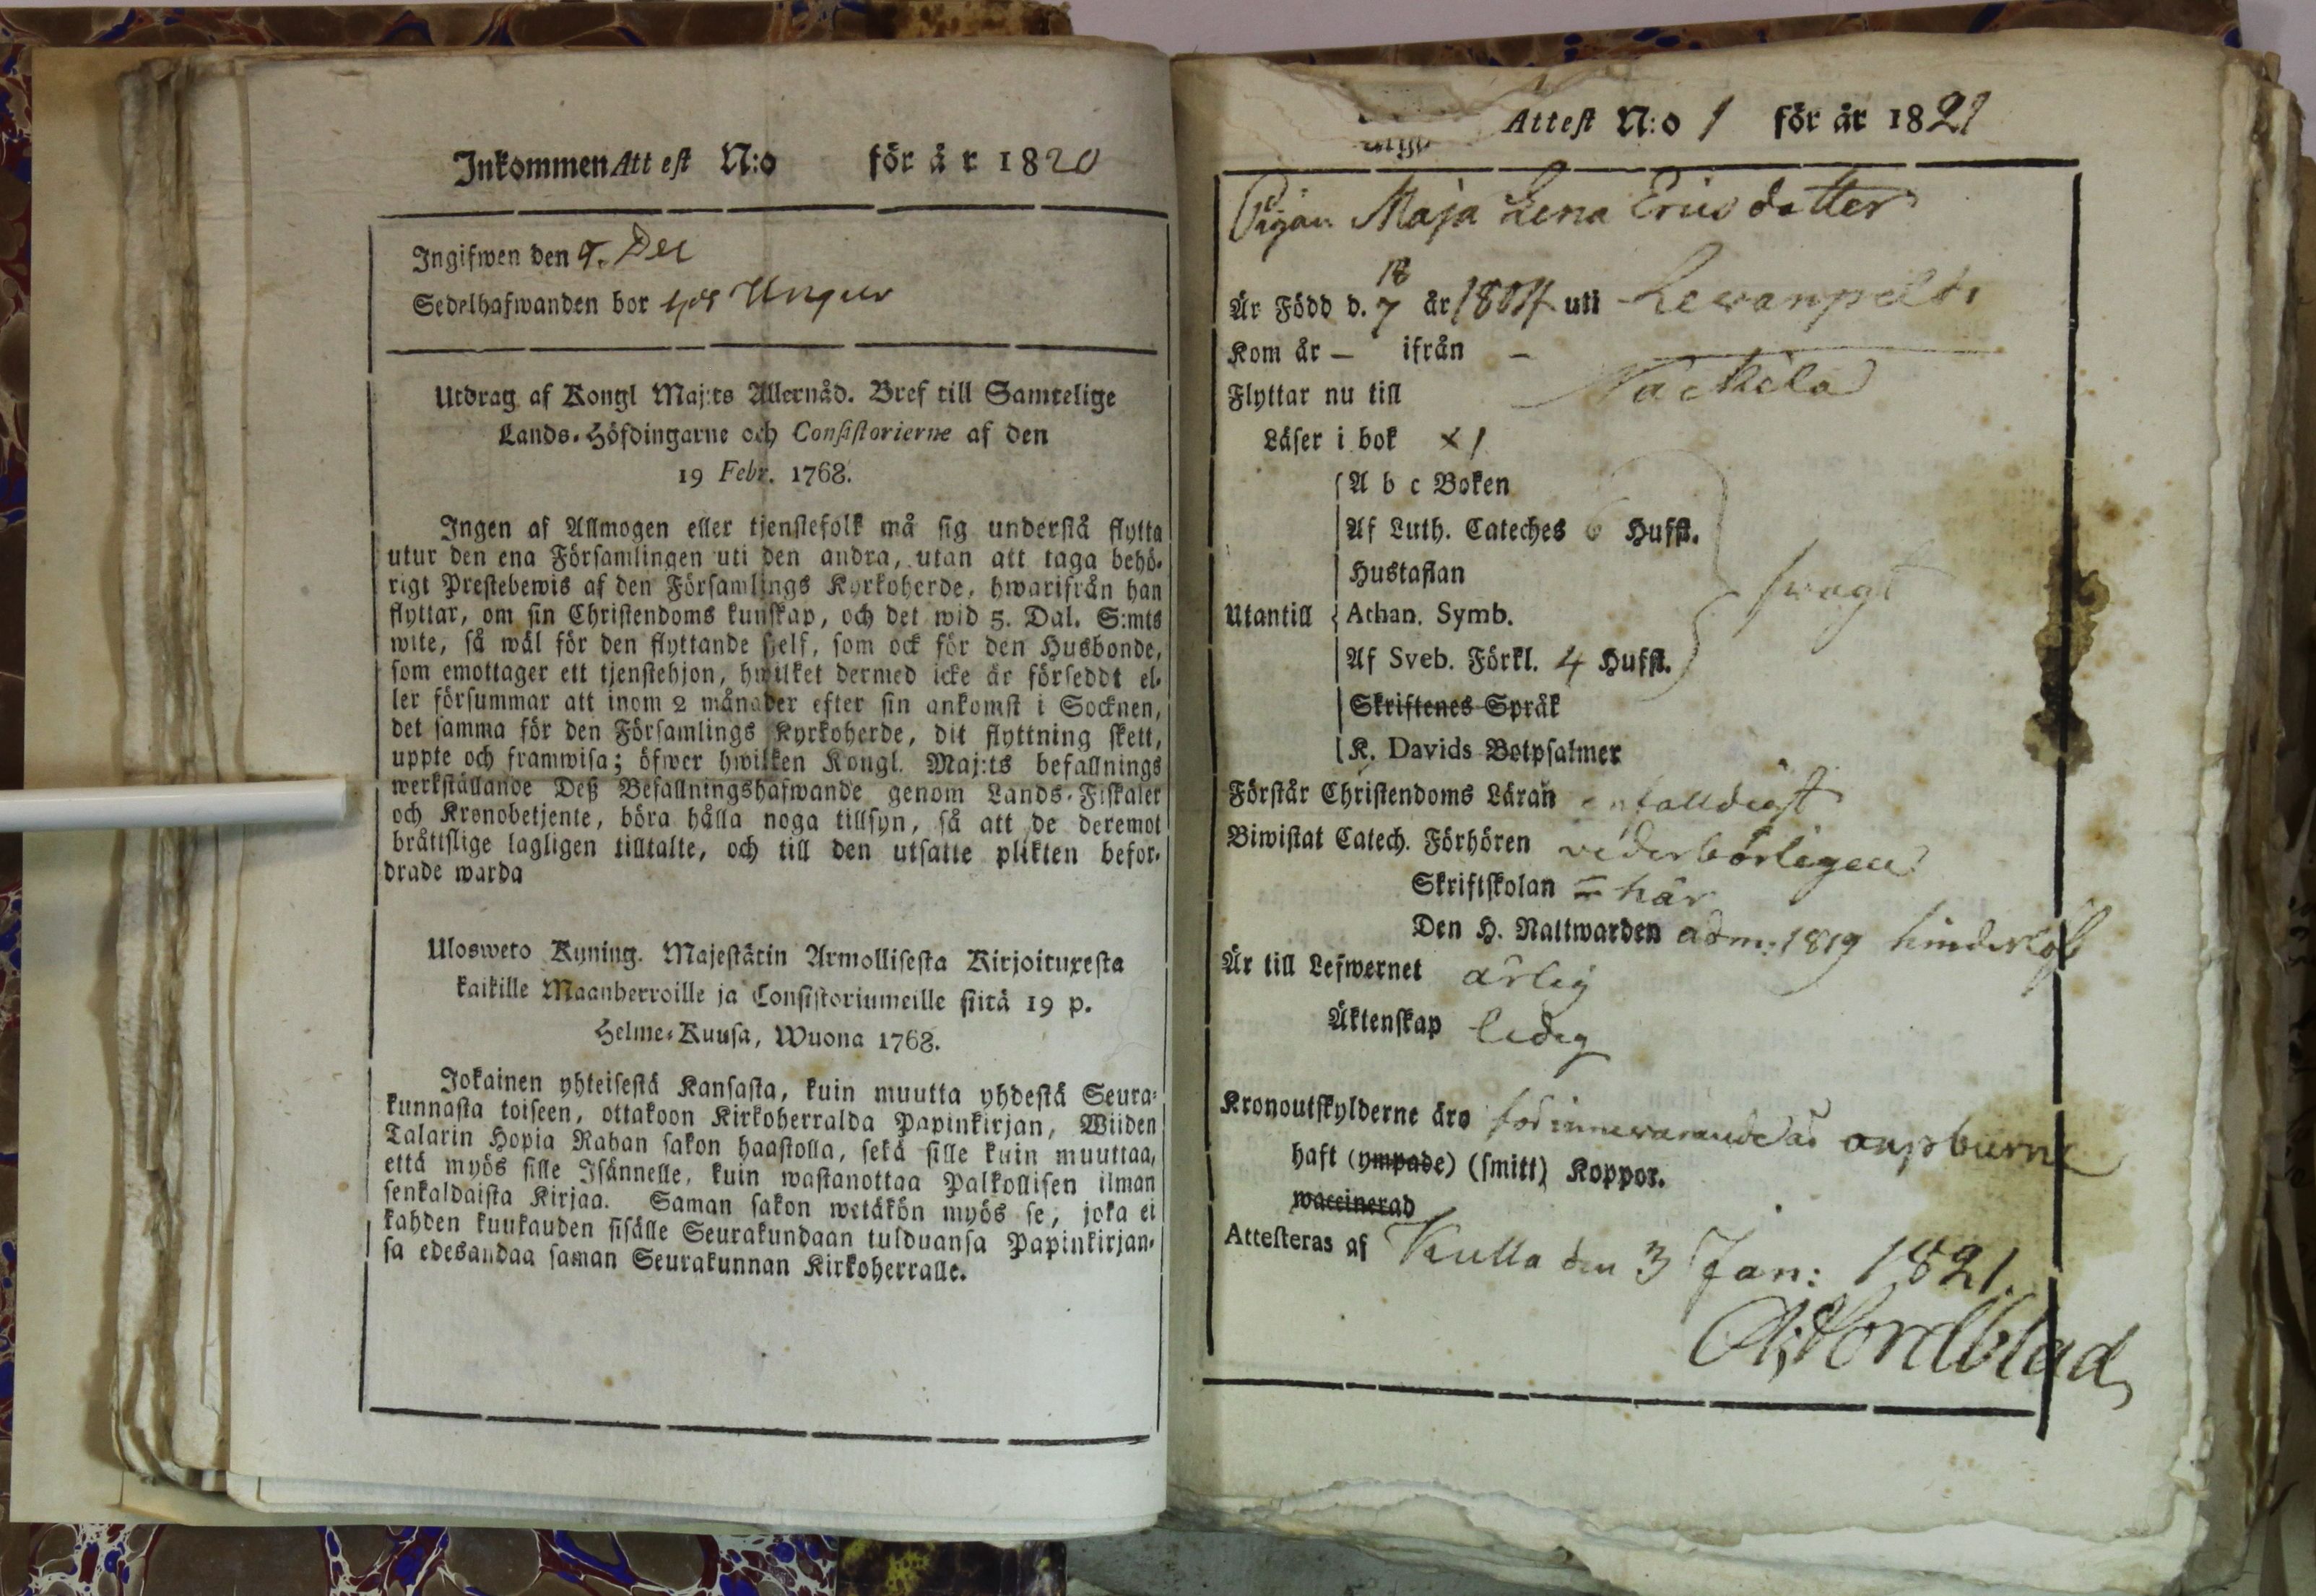 Inkommen Attest N:o för år 1820
Ingifwen den 9. Dec
Sedelhafwanden bor hos Ungur
Utdrag af Kongl Maj:ts Allernåd. Bref till Samtelige
Lands-Höfdingarne och Consistorierne af den
19 Febr. 1768.
Ingen af Allmogen eller tjenstefolk må sig understå flytta
utur den ena Församlingen uti den andra, utan att taga behö-
rigt Prestebewis af den Församlings Kyrkoherde, hwarifrån han
flyttar, om sin Christendoms kunskap, och det wid 5. Dal. S:mts
wite, så wäl för den flyttande sjelf, som ock för den Husbonde,
som emottager ett tjenstehjon, hwilket dermed icke är förseddt el-
ler försummar att inom 2 månader efter sin ankomst i Socknen,
det samma för den Församlings Kyrkoherde, dit flyttning skett,
uppte och framwisa; öfwer hwilken Kongl. Maj:ts befallnings
werkställande Deß Befallningshafwande genom Lands-Fiskaler
och Kronobetjente, böra hålla noga tillsyn, så att de deremot
bråttslige lagligen tilltalte, och till den utsatte plikten befor-
drade warda
Ulosweto Kyning. Majestätin Armollisesta Kirjoituxesta
kaikille Maanherroille ja Consistoriumeille siitä 19 p.
Helme-Kuusa, Wuona 1768.
Jokainen yhteisestä Kansasta, kuin muutta yhdestä Seura-
kunnasta toiseen, ottakoon Kirkoherralda Papinkirjan, Wiiden
Talarin Hopia Rahan sakon haastolla, sekä sille kuin muuttaa,
että myös sille Isännelle, kuin wastanottaa Palkollisen ilman
senkaldaista Kirjaa. Saman sakon wetäkön myös se, joka ei
kahden kuukauden sisälle Seurakundaan tulduansa Papinkirjan-
sa edesandaa saman Seurakunnan Kirkoherralle.
Attest N:o 1 för år 1821
Pigan Maja Lena Ericsdotter
Är Född d. 18/7 år 1804 uti Lewanpelto
Kom år – ifrån –
Flyttar nu till Nackila
Läser i bok x 1
A b c Boken
Af Luth. Cateches 6 Hufst.
Hustaflan
Utantill Athan. Symb. swagt
Af Sveb. Förkl. 4 Hufst.
Skriftenes Språk
K. Davids Botpsalmer
Förstår Christendoms Läran enfalldigt
Biwistat Catech. Förhören vederbörligen
Skriftskolan = här
Den H. Nattwarden adm: 1819 hinderlös
Är till Lefwernet ärlig
Äktenskap ledig
Kronoutskylderne äro för innevarande år
haft (ympade) (smitt) Koppor.
waccinerad
Attesteras af Kulla den 3 Jan: 1821.
Nordblad